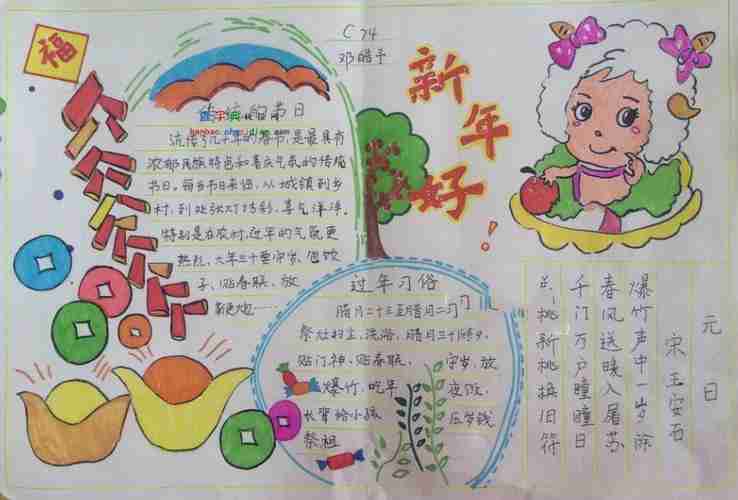 福
C 74
邓皓予
新年好!
传统的节日
流传了几千年的春节,是最具有
浓郁民族特色和喜庆气氛的传统
节日。每当节日来临,从城镇到乡
村,到处张灯结彩,喜气洋洋。
特别是在农村,过年的气氛更
热烈,大年三十要守岁、包饺
子、贴春联、放
过年习俗
腊月二十三至腊月二
祭灶扫尘,洗浴,腊月三十
贴门神、贴春联、守岁、放
爆竹、吃年夜饭、
长辈给小孩压岁钱
祭祖
元日
宋 王安石
爆竹声中一岁除
春风送暖入屠苏
千门万户瞳瞳日
总桃新桃换旧符